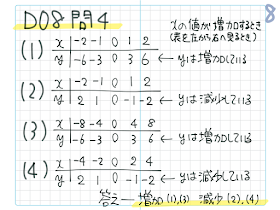 D08 問4
8
xの値が増加するとき
(表を左から右へ見るとき)
(1) x -2 -1 0 1 2
y -6 -3 0 3 6 ← yは増加している
(2) x -2 -1 0 1 2
y 2 1 0 -1 -2 ← yは減少している
(3) x -8 -4 0 4 8
y -6 -3 0 3 6 ← yは増加している
(4) x -4 -2 0 2 4
y 2 1 0 -1 -2 ← yは減少している
答え 増加(1),(3) 減少(2),(4)